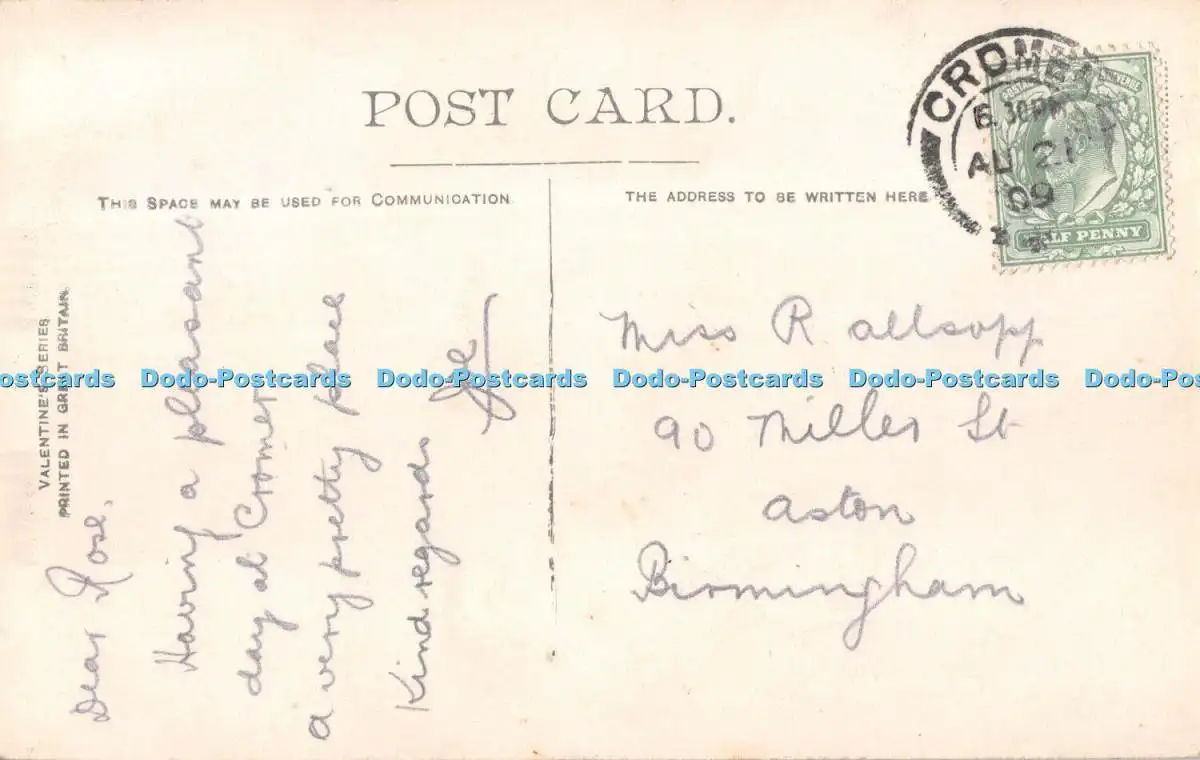 POST CARD.
THIS SPACE MAY BE USED FOR COMMUNICATION
THE ADDRESS TO BE WRITTEN HERE
VALENTINE'S SERIES
PRINTED IN GREAT BRITAIN.
Dear Rose,
Having a pleasant
day at Cromer
a very pretty place
Kind regards
CROMER
6.30PM
AU 21
09
POSTAGE REVENUE
HALF PENNY
Miss R Allsopp
90 Miller St
Aston
Birmingham
Dodo-Postcards Dodo-Postcards Dodo-Postcards Dodo-Postcards Dodo-Postcards Dodo-Postcards